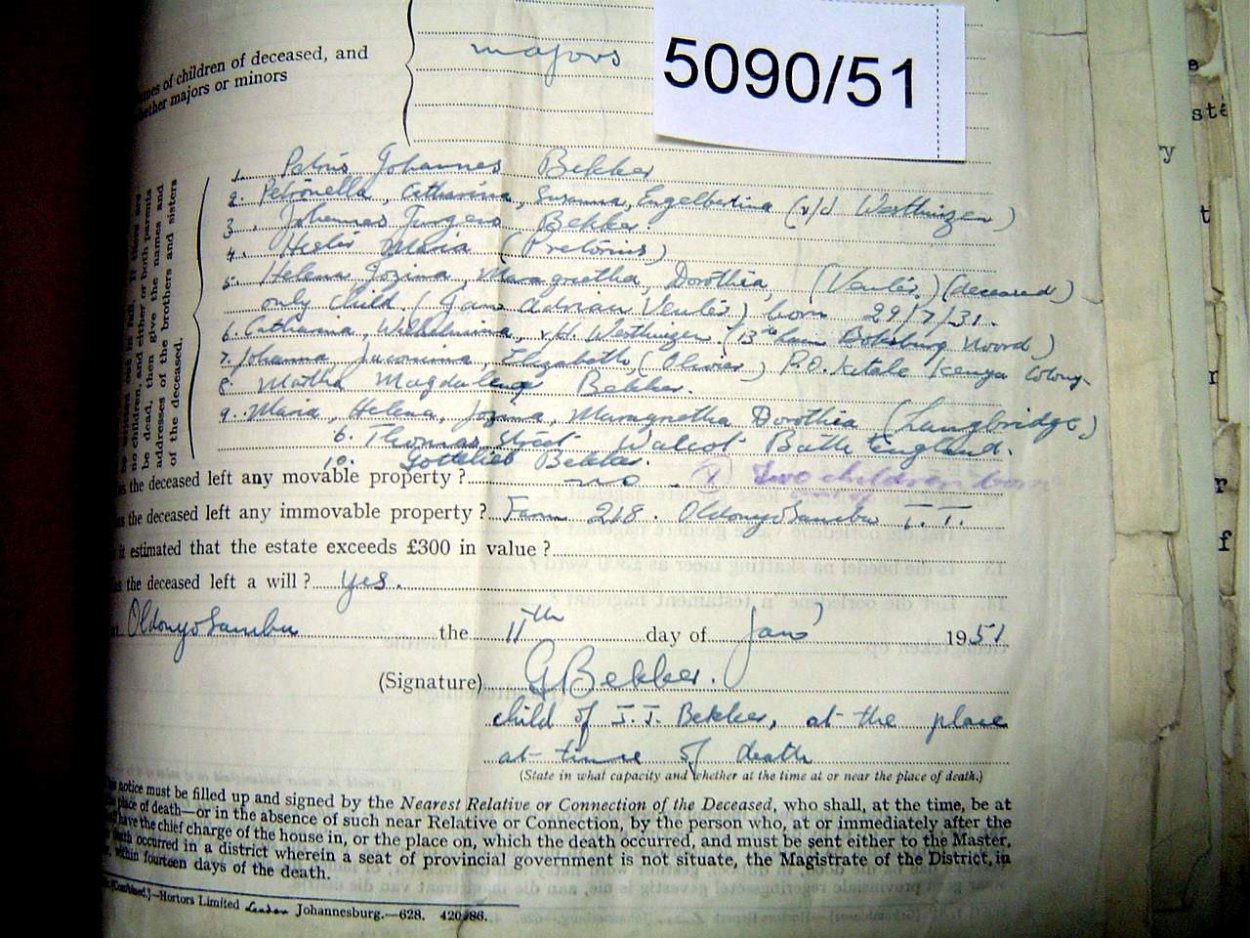 majors
5090/51
names of children of deceased, and
whether majors or minors
1. Petrus Johannes Bekker
2. Petronella, Catharina, Susanna, Engelbertina (v/d Westhuizen)
3. Johannes Jurgens Bekker.
4. Maria (Pretorius)
5. Helena Jozina, Maragretha, Dorothia, (Venter) (deceased)
only child (Jans Adrian Venter) born 29/7/31.
6. Catharina, Wilhelmina, v/d. Westhuizen (13 Boksburg Noord)
7. Johanna Jacomina, Elizabeth, (Olivier) P.O. Kitale Kenya Colony
8. Martha Magdalena Bekker.
9. Maria, Helena, Jozina, Maragretha Dorothia (Langbridge)
6. Thomas Street Walcot Bath England.
10. Gottlieb Bekker.
be written out in full. If there are
no children, and either or both parents
be dead, then give the names and
addresses of the brothers and sisters
of the deceased.
the deceased left any movable property ? no. two children
the deceased left any immovable property ? Farm 218. Oldonyo Sambu T. T.
it estimated that the estate exceeds £300 in value ?
the deceased left a will ? yes.
Oldonyo Sambu the 11th day of Jan 1951
(Signature) G Bekker.
child of J. J. Bekker, at the place
at time of death
(State in what capacity and whether at the time at or near the place of death.)
notice must be filled up and signed by the Nearest Relative or Connection of the Deceased, who shall, at the time, be at
place of death—or in the absence of such near Relative or Connection, by the person who, at or immediately after the
have the chief charge of the house in, or the place on, which the death occurred, and must be sent either to the Master,
death occurred in a district wherein a seat of provincial government is not situate, the Magistrate of the District, in
within fourteen days of the death.
(Combined.)—Hortors Limited London Johannesburg.—628. 420/86.